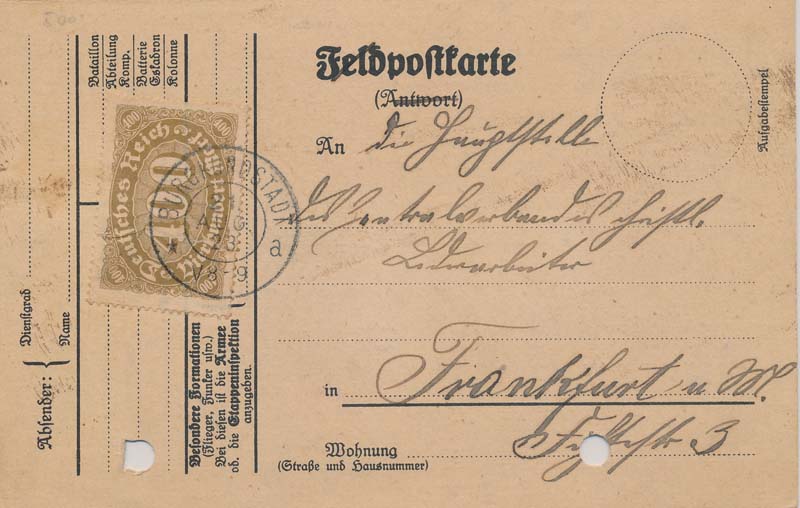 500
Feldpostkarte
(Antwort)
Ausgabestempel
An die Hauptstelle
des Zentralverbandes christl.
Lederarbeiter
in Frankfurt a M.
3
Wohnung
(Straße und Hausnummer)
Bataillon
Abteilung
Komp.
Batterie
Eskadron
Kolonne
400 400
Deutsches Reich
400
Vierhundert Mark
400
BURGKUNDSTADT
a
V 8-9
Besondere Formationen
(Flieger, Funker usw.)
Bei diesen ist die Armee
od. die Etappeninspektion
anzugeben.
Absender:
Dienstgrad
Name